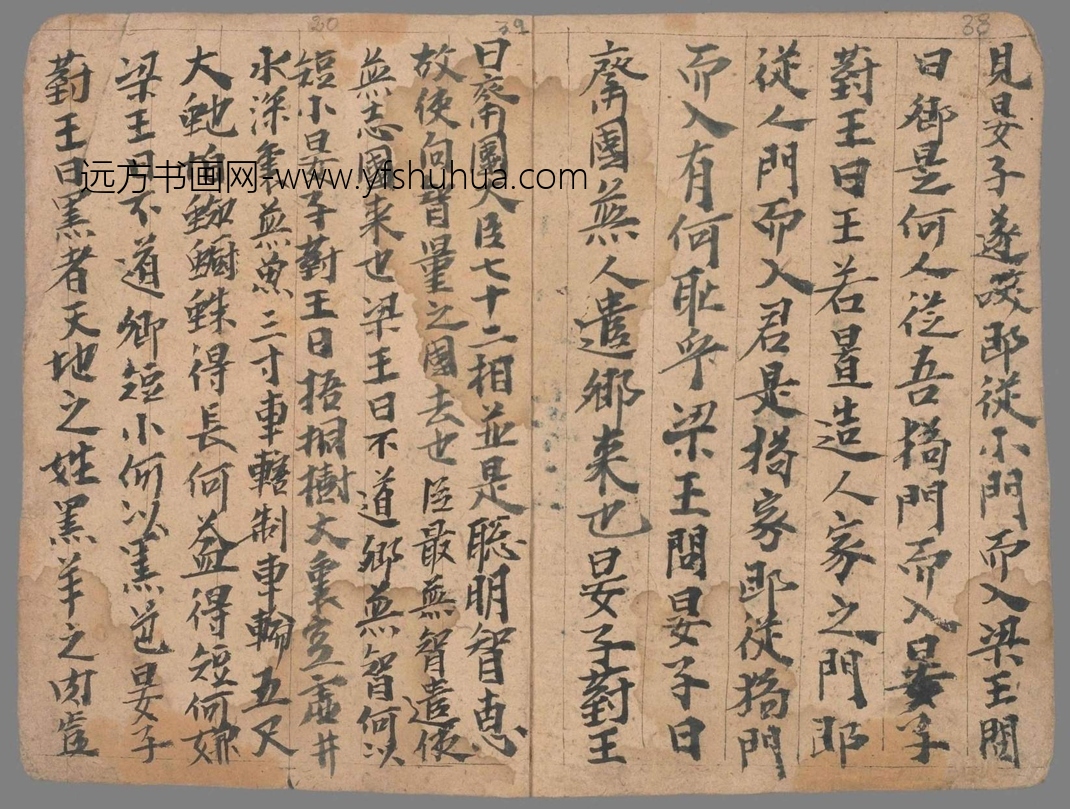 38
39
20
見晏子遂即從小門而入梁王問
曰卿是何人從吾狗門而入晏子
對王曰王若置造人家之門即
從人門而入君是狗家即從狗門
而入有何恥乎梁王問晏子曰
齊國無人遣卿來也晏子對王
曰齊國大臣七十二相並是聰明智惠
故使向智量之國去也臣最無智遣使
無志國來也梁王曰不道卿無智何以
短小晏子對王曰梧桐樹大裏空虛井
水深裏無魚三寸車轄制車輪五尺
大虵怕蜘蛛得長何益得短何嫌
梁王曰不道卿短小何以黑色晏子
對王曰黑者天地之姓黑羊之肉豈
远方书画网-www.yfshuhua.com